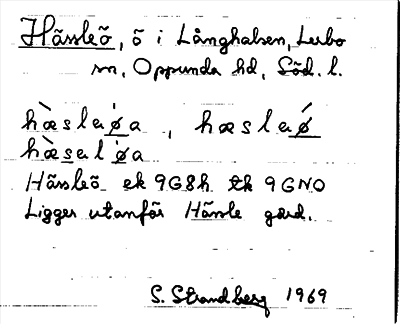 Hässleö, ö i Långhalsen, Lerbo
sn, Oppunda hd, Söd. l.
hæ̀slaøa, hæslaǿ
hæ̀sɐløa
Hässleö ek 9G8h tk 9GNO
Ligger utanför Hässle gård.
S. Strandberg 1969